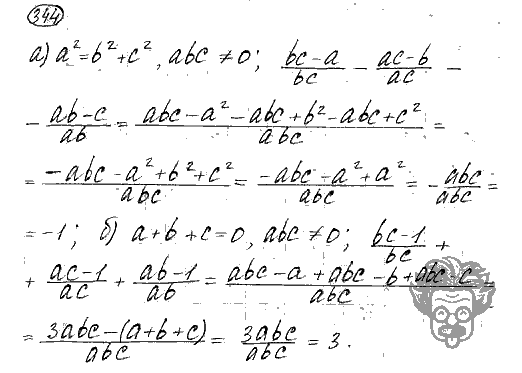 344
а) a² = b² + c², abc ≠ 0; (bc − a)/bc − (ac − b)/ac −
− (ab − c)/ab = (abc − a² − abc + b² − abc + c²)/abc =
= (−abc − a² + b² + c²)/abc = (−abc − a² + a²)/abc = − abc/abc =
= −1; б) a + b + c = 0, abc ≠ 0; (bc − 1)/bc +
+ (ac − 1)/ac + (ab − 1)/ab = (abc − a + abc − b + abc − c)/abc =
= (3abc − (a + b + c))/abc = 3abc/abc = 3.